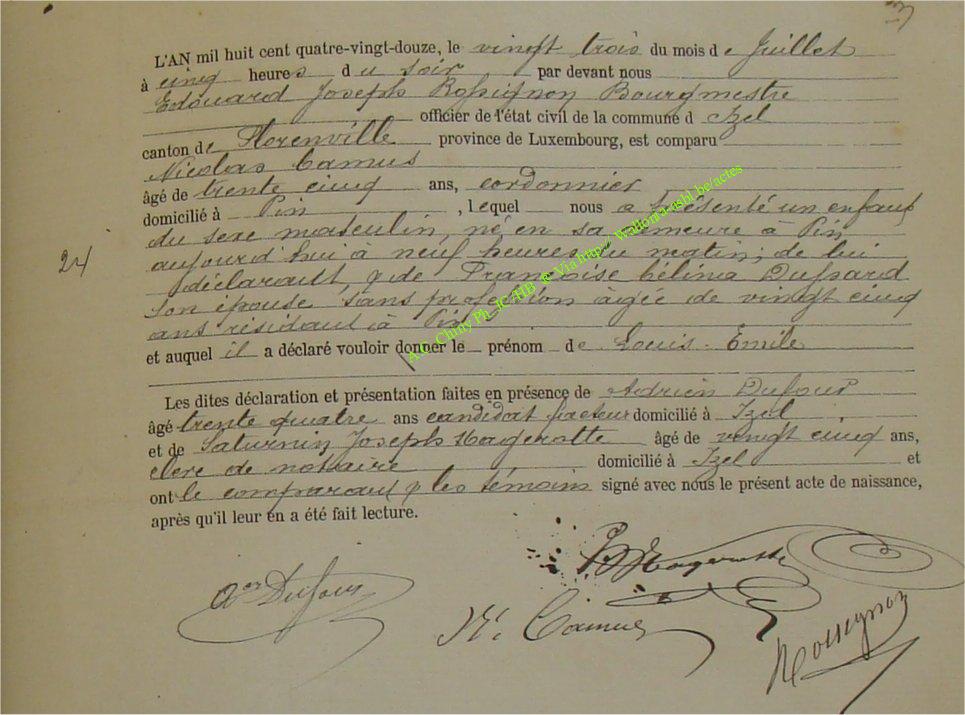 L'AN mil huit cent quatre-vingt-douze, le vingt trois du mois de Juillet
à cinq heures du soir par devant nous
Edouard Joseph Rossignon Bourgmestre
officier de l'état civil de la commune d Izel
canton de Florenville province de Luxembourg, est comparu
Nicolas Camus
âgé de trente cinq ans, cordonnier
domicilié à Pin, lequel nous a présenté un enfant
du sexe masculin, né en sa demeure à Pin
24
aujourd'hui à neuf heures du matin; de lui
déclarant, & de Françoise Célina Dussard
son épouse sans profession âgée de vingt cinq
ans résidant à Pin
et auquel il a déclaré vouloir donner le prénom de Louis-Emile
Les dites déclaration et présentation faites en présence de Adrien Dufour
âgé trente quatre ans candidat facteur domicilié à Izel,
et de Saturnin Joseph Hagerotte âgé de vingt cinq ans,
clerc de notaire domicilié à Izel et
ont le comparant & les témoins signé avec nous le présent acte de naissance,
après qu'il leur en a été fait lecture.
A.C. Chiny Ph_IC/HB Via http:// Wallonia-asbl.be/actes
Hagerotte
Aen Dufour
N. Camus
Rossignon